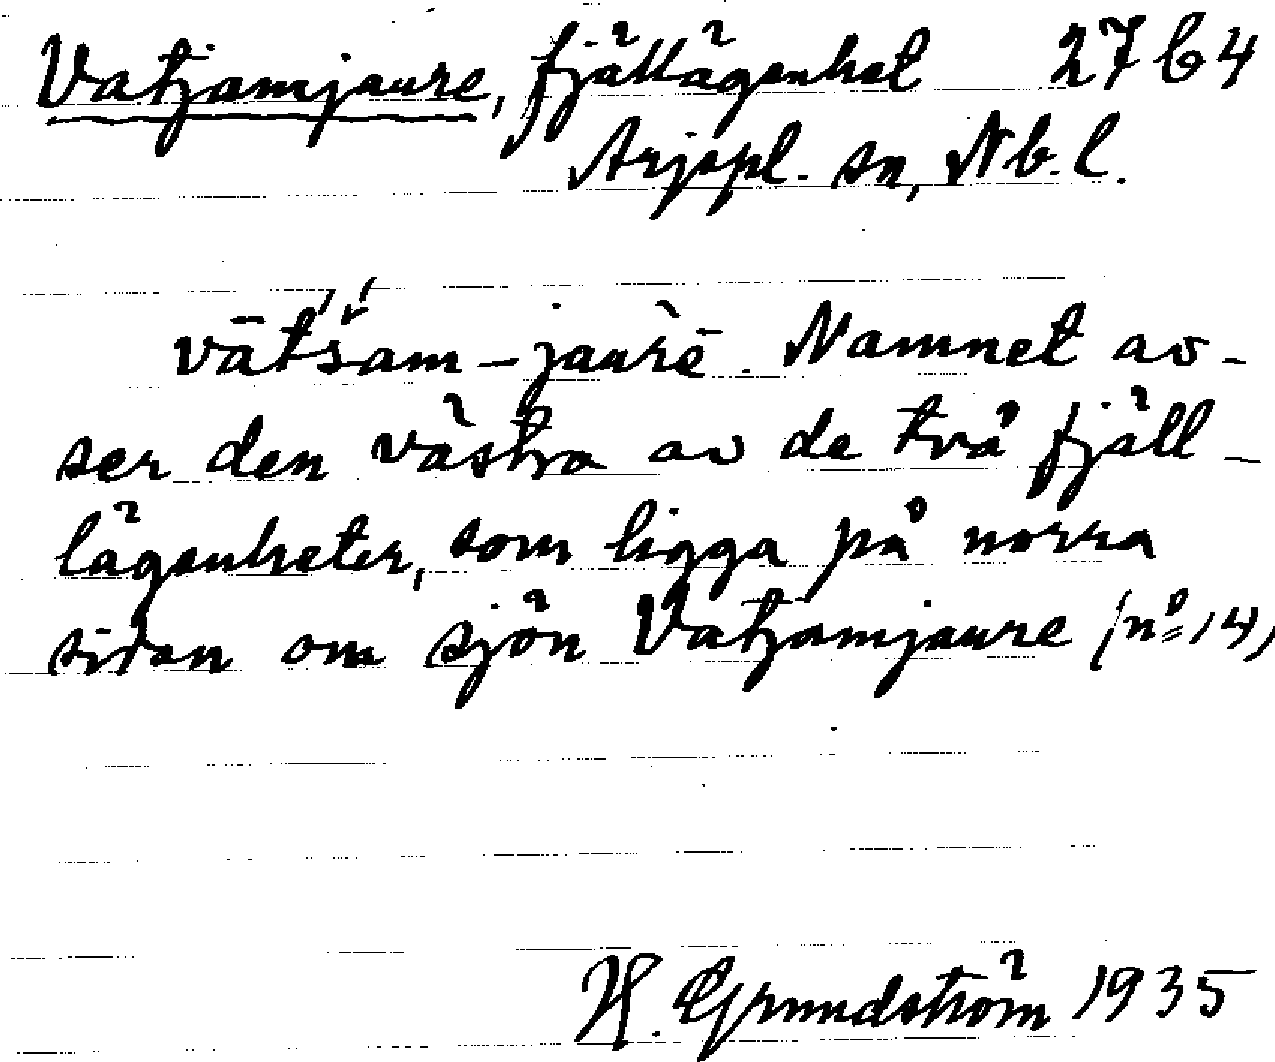 Vatjamjaure, fjällägenhet 27 b 4
Arjepl. sn, Nb. l.
vāt́š́am-jaùrē. Namnet av-
ser den västra av de två fjäll-
lägenheter, som ligga på norra
sidan om sjön Vatjamjaure (nº 14)
H. Grundström 1935